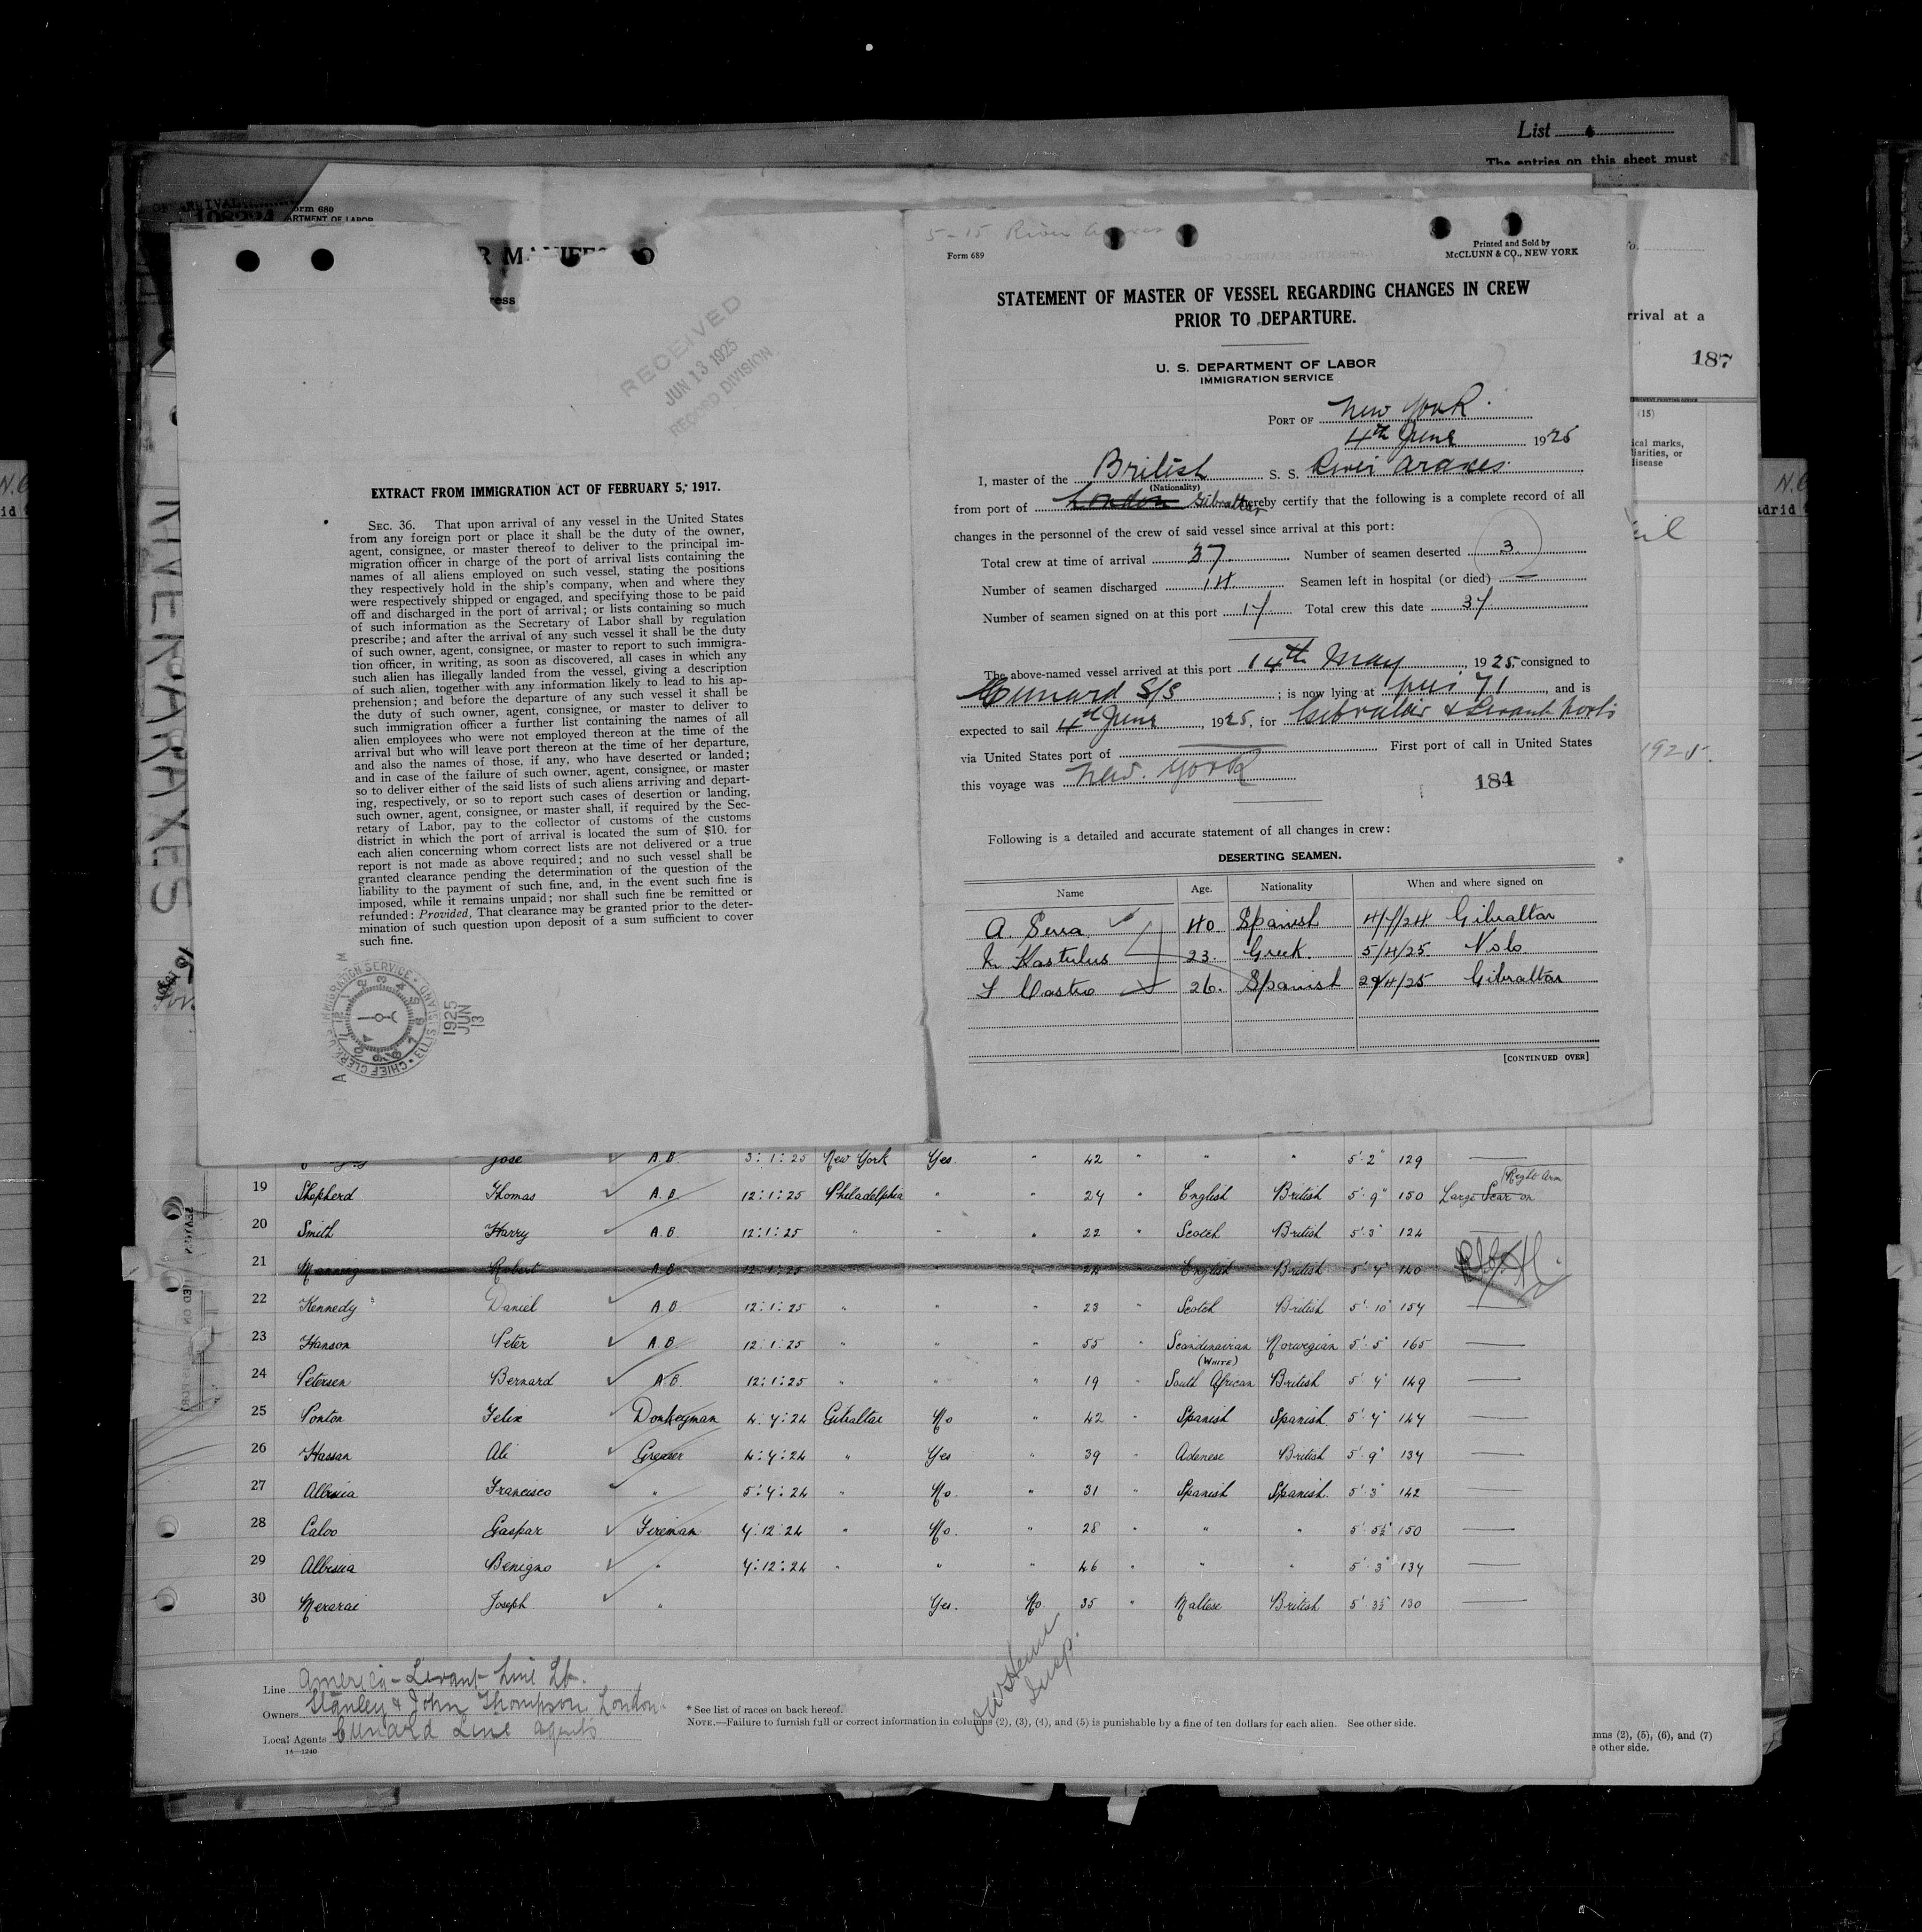 List
The entries on this sheet must
Form 680
RECEIVED
JUN 13 1925
RECORD DIVISION
EXTRACT FROM IMMIGRATION ACT OF FEBRUARY 5, 1917.
SEC. 36. That upon arrival of any vessel in the United States
from any foreign port or place it shall be the duty of the owner,
agent, consignee, or master thereof to deliver to the principal im-
migration officer in charge of the port of arrival lists containing the
names of all aliens employed on such vessel, stating the positions
they respectively hold in the ship's company, when and where they
were respectively shipped or engaged, and specifying those to be paid
off and discharged in the port of arrival; or lists containing so much
of such information as the Secretary of Labor shall by regulation
prescribe; and after the arrival of any such vessel it shall be the duty
of such owner, agent, consignee, or master to report to such immigra-
tion officer, in writing, as soon as discovered, all cases in which any
such alien has illegally landed from the vessel, giving a description
of such alien, together with any information likely to lead to his ap-
prehension; and before the departure of any such vessel it shall be
the duty of such owner, agent, consignee, or master to deliver to
such immigration officer a further list containing the names of all
alien employees who were not employed thereon at the time of the
arrival but who will leave port thereon at the time of her departure,
and also the names of those, if any, who have deserted or landed;
and in case of the failure of such owner, agent, consignee, or master
so to deliver either of the said lists of such aliens arriving and depart-
ing, respectively, or so to report such cases of desertion or landing,
such owner, agent, consignee, or master shall, if required by the Sec-
retary of Labor, pay to the collector of customs of the customs
district in which the port of arrival is located the sum of $10. for
each alien concerning whom correct lists are not delivered or a true
report is not made as above required; and no such vessel shall be
granted clearance pending the determination of the question of the
liability to the payment of such fine, and, in the event such fine is
imposed, while it remains unpaid; nor shall such fine be remitted or
refunded: Provided, That clearance may be granted prior to the deter-
mination of such question upon deposit of a sum sufficient to cover
such fine.
1925 JUN 13
5-15 River Araxes
Form 689
Printed and Sold by
McCLUNN & CO., NEW YORK
STATEMENT OF MASTER OF VESSEL REGARDING CHANGES IN CREW
PRIOR TO DEPARTURE.
U. S. DEPARTMENT OF LABOR
IMMIGRATION SERVICE
PORT OF New York
4th June 1925
I, master of the British S. S. River Araxes
(Nationality)
from port of London Gibraltar hereby certify that the following is a complete record of all
changes in the personnel of the crew of said vessel since arrival at this port:
Total crew at time of arrival 37. Number of seamen deserted 3
Number of seamen discharged 14. Seamen left in hospital (or died) —
Number of seamen signed on at this port 17 Total crew this date 37.
The above-named vessel arrived at this port 14th May, 1925, consigned to
Cunard S/S; is now lying at pier 71, and is
expected to sail 4th June, 1925, for Gibraltar & Levant Ports
via United States port of — First port of call in United States
this voyage was New York
184
Following is a detailed and accurate statement of all changes in crew:
DESERTING SEAMEN.
Name Age. Nationality When and where signed on
A. Serra 40 Spanish 4/7/24 Gibraltar
N. Kastulus 23. Greek. 5/4/25. Volo
F. Castro 26. Spanish 29/4/25 Gibraltar
[CONTINUED OVER]
rrival at a
187
(15)
RIVER ARAXES
Jose A.B. 3:1:25 New York Yes " 42 " " " 5' 2" 129 —
19 Shepherd Thomas A.B 12:1:25 Philadelphia " " 24 " English British 5' 9" 150 Large Scar on Right Arm
20 Smith Harry A.B. 12:1:25 " " " 22 " Scotch British 5' 3" 124 —
21 Manning Robert A.B 12:1:25 " " 24 English British 5' 7" 140
22 Kennedy Daniel A.B 12:1:25 " " " 23 " Scotch British 5' 10" 157 —
23 Hanson Peter A.B. 12:1:25 " " " 55 " Scandinavian Norwegian 5' 5" 165 —
24 Petersen Bernard A.B. 12:1:25 " " " 19 " (WHITE) South African British 5' 7" 149 —
25 Ponton Felix Donkeyman 4:7:24 Gibraltar No " 42 " Spanish Spanish. 5' 7" 147 —
26 Hassan Ali Greaser 4:7:24 " Yes " 39 " Adenese British 5' 9" 137 —
27 Albisua Francisco " 5:7:24 " No. " 31 " Spanish Spanish. 5' 3" 142 —
28 Calvo Gaspar Fireman 7:12:24 " No. " 28 " " " 5' 5½" 150 —
29 Albisua Benigno " 7:12:24 " " 46 " " " 5' 3" 137 —
30 Joseph " Yes. No 35 " Maltese British 5' 3½" 130 —
Line America-Levant Line Ld.
Owners Stanley & John Thompson London
Local Agents Cunard Line Agents
14—1240
* See list of races on back hereof.
NOTE.—Failure to furnish full or correct information in columns (2), (3), (4), and (5) is punishable by a fine of ten dollars for each alien. See other side.
mns (2), (5), (6), and (7)
other side.